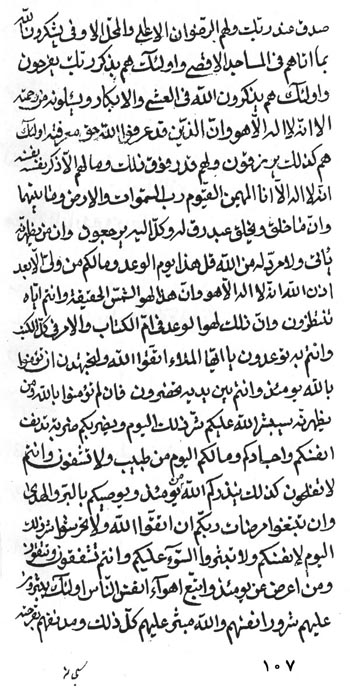 صدق عند ربك ولهم الرضوان الاعلى والمحل الاوفى يشكرون الله
بما اتاهم فى المساجد الاقصى واولئك هم بذكر ربك يفرحون
واولئك هم يذكرون الله فى العشى والابكار ويسئلونه من رحمته
الا انه لا اله الا هو وان الذين قد عرفوا الله حق معرفته اولئك
هم كذلك يرزقون ولهم قدر فوق ذلك وما لهم الا ذكر نفسه بنفسه
انه لا اله الا انا المهيمن القيوم رب السموات والارض وما بينهما
وان ما خلق ويخلق عبد رق له وكل اليه يرجعون وان من
يأتى ولا مرد له من الله قل هذا يوم الوعد وما لكم من ولى الا بعد
اذن الله انه لا اله الا هو وان هذا لهو الشمس الحقيقة وانتم اياه
تنتظرون وان ذلك لهو الوعد فى ام الكتاب والامر فى كل الكتب
وانتم به توعدون يا ايها الملاء اتقوا الله ولا تجتهدون ان تؤمنوا
بالله يومئذ وانتم بين يديه محضرون فان لم تؤمنوا بالله ومن
يظهرنه سيبعث الله عليكم شر ذلك اليوم ويضربكم ضربة
انفسكم واجسادكم وما لكم اليوم من طبيب ولا تشفون وانتم
لا تعلمون كذلك ينذركم الله من يومئذ ويوصيكم بالبر والهدى
وان تبتغوا مرضات ربكم ان اتقوا الله ولا شر ذلك
اليوم لانفسكم ولا السوء عليكم وانتم
ومن اعرض عن يومئذ واتبع اهواء انفس الناس اولئك
عليهم شرور انفسهم والله عليهم كل ذلك
١٠٧